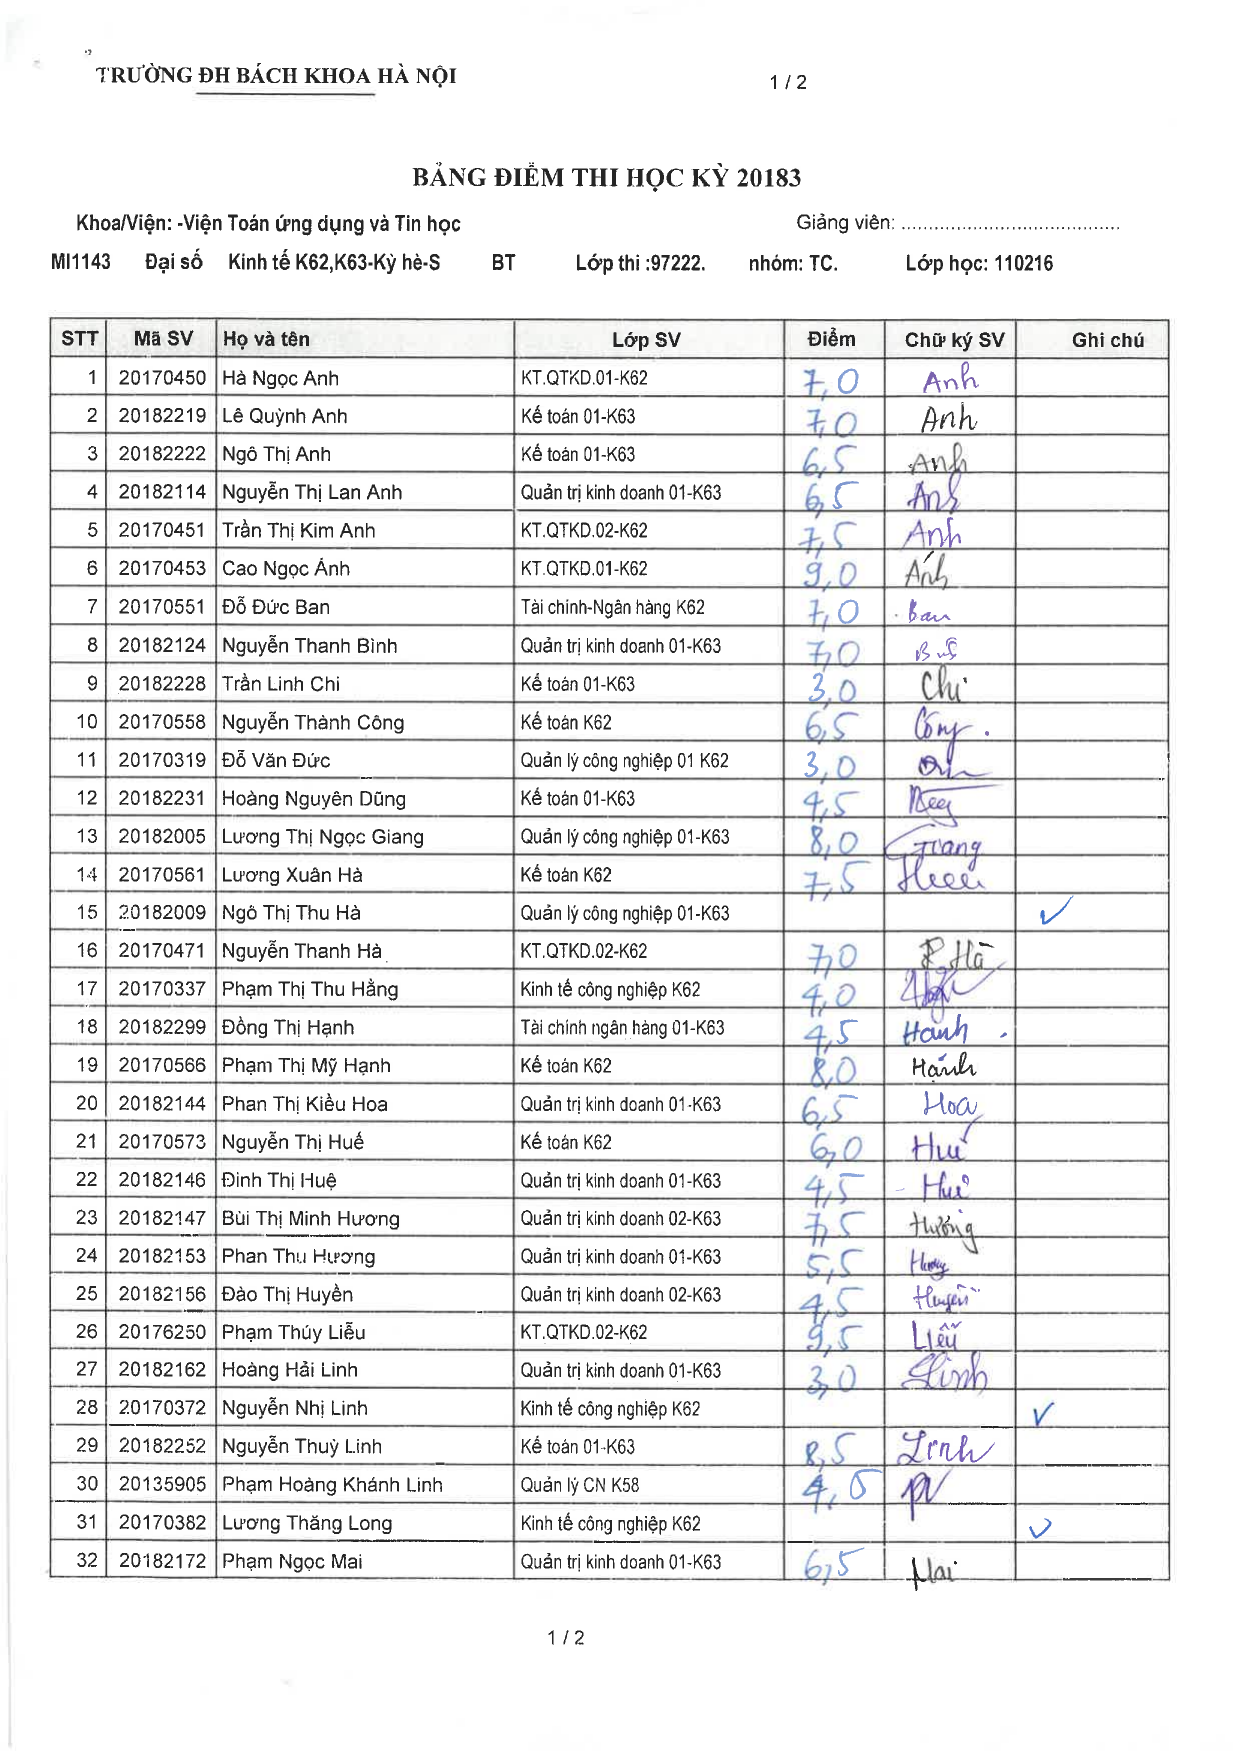 TRƯỜNG ĐH BÁCH KHOA HÀ NỘI
1 / 2
BẢNG ĐIỂM THI HỌC KỲ 20183
Khoa/Viện: -Viện Toán ứng dụng và Tin học Giảng viên: ......................................
MI1143 Đại số Kinh tế K62,K63-Kỳ hè-S BT Lớp thi :97222. nhóm: TC. Lớp học: 110216
STT Mã SV Họ và tên Lớp SV Điểm Chữ ký SV Ghi chú
1 20170450 Hà Ngọc Anh KT.QTKD.01-K62 7,0 Anh
2 20182219 Lê Quỳnh Anh Kế toán 01-K63 7,0 Anh
3 20182222 Ngô Thị Anh Kế toán 01-K63 6,5 Anh
4 20182114 Nguyễn Thị Lan Anh Quản trị kinh doanh 01-K63 6,5 Anh
5 20170451 Trần Thị Kim Anh KT.QTKD.02-K62 7,5 Anh
6 20170453 Cao Ngọc Ánh KT.QTKD.01-K62 9,0 Ánh
7 20170551 Đỗ Đức Ban Tài chính-Ngân hàng K62 7,0 Ban
8 20182124 Nguyễn Thanh Bình Quản trị kinh doanh 01-K63 7,0
9 20182228 Trần Linh Chi Kế toán 01-K63 3,0 Chi
10 20170558 Nguyễn Thành Công Kế toán K62 6,5 Công
11 20170319 Đỗ Văn Đức Quản lý công nghiệp 01 K62 3,0
12 20182231 Hoàng Nguyên Dũng Kế toán 01-K63 4,5
13 20182005 Lương Thị Ngọc Giang Quản lý công nghiệp 01-K63 8,0 Giang
14 20170561 Lương Xuân Hà Kế toán K62 7,5
15 20182009 Ngô Thị Thu Hà Quản lý công nghiệp 01-K63 ✓
16 20170471 Nguyễn Thanh Hà KT.QTKD.02-K62 7,0 Hà
17 20170337 Phạm Thị Thu Hằng Kinh tế công nghiệp K62 4,0
18 20182299 Đồng Thị Hạnh Tài chính ngân hàng 01-K63 4,5 Hạnh
19 20170566 Phạm Thị Mỹ Hạnh Kế toán K62 8,0 Hạnh
20 20182144 Phan Thị Kiều Hoa Quản trị kinh doanh 01-K63 6,5 Hoa
21 20170573 Nguyễn Thị Huế Kế toán K62 6,0 Huế
22 20182146 Đinh Thị Huệ Quản trị kinh doanh 01-K63 4,5 Huệ
23 20182147 Bùi Thị Minh Hương Quản trị kinh doanh 02-K63 7,5 Hương
24 20182153 Phan Thu Hương Quản trị kinh doanh 01-K63 5,5 Hương
25 20182156 Đào Thị Huyền Quản trị kinh doanh 02-K63 4,5 Huyền
26 20176250 Phạm Thúy Liễu KT.QTKD.02-K62 9,5 Liễu
27 20182162 Hoàng Hải Linh Quản trị kinh doanh 01-K63 3,0 Linh
28 20170372 Nguyễn Nhị Linh Kinh tế công nghiệp K62 ✓
29 20182252 Nguyễn Thuỳ Linh Kế toán 01-K63 8,5 Linh
30 20135905 Phạm Hoàng Khánh Linh Quản lý CN K58
31 20170382 Lương Thăng Long Kinh tế công nghiệp K62 ✓
32 20182172 Phạm Ngọc Mai Quản trị kinh doanh 01-K63 6,5 Mai
1 / 2